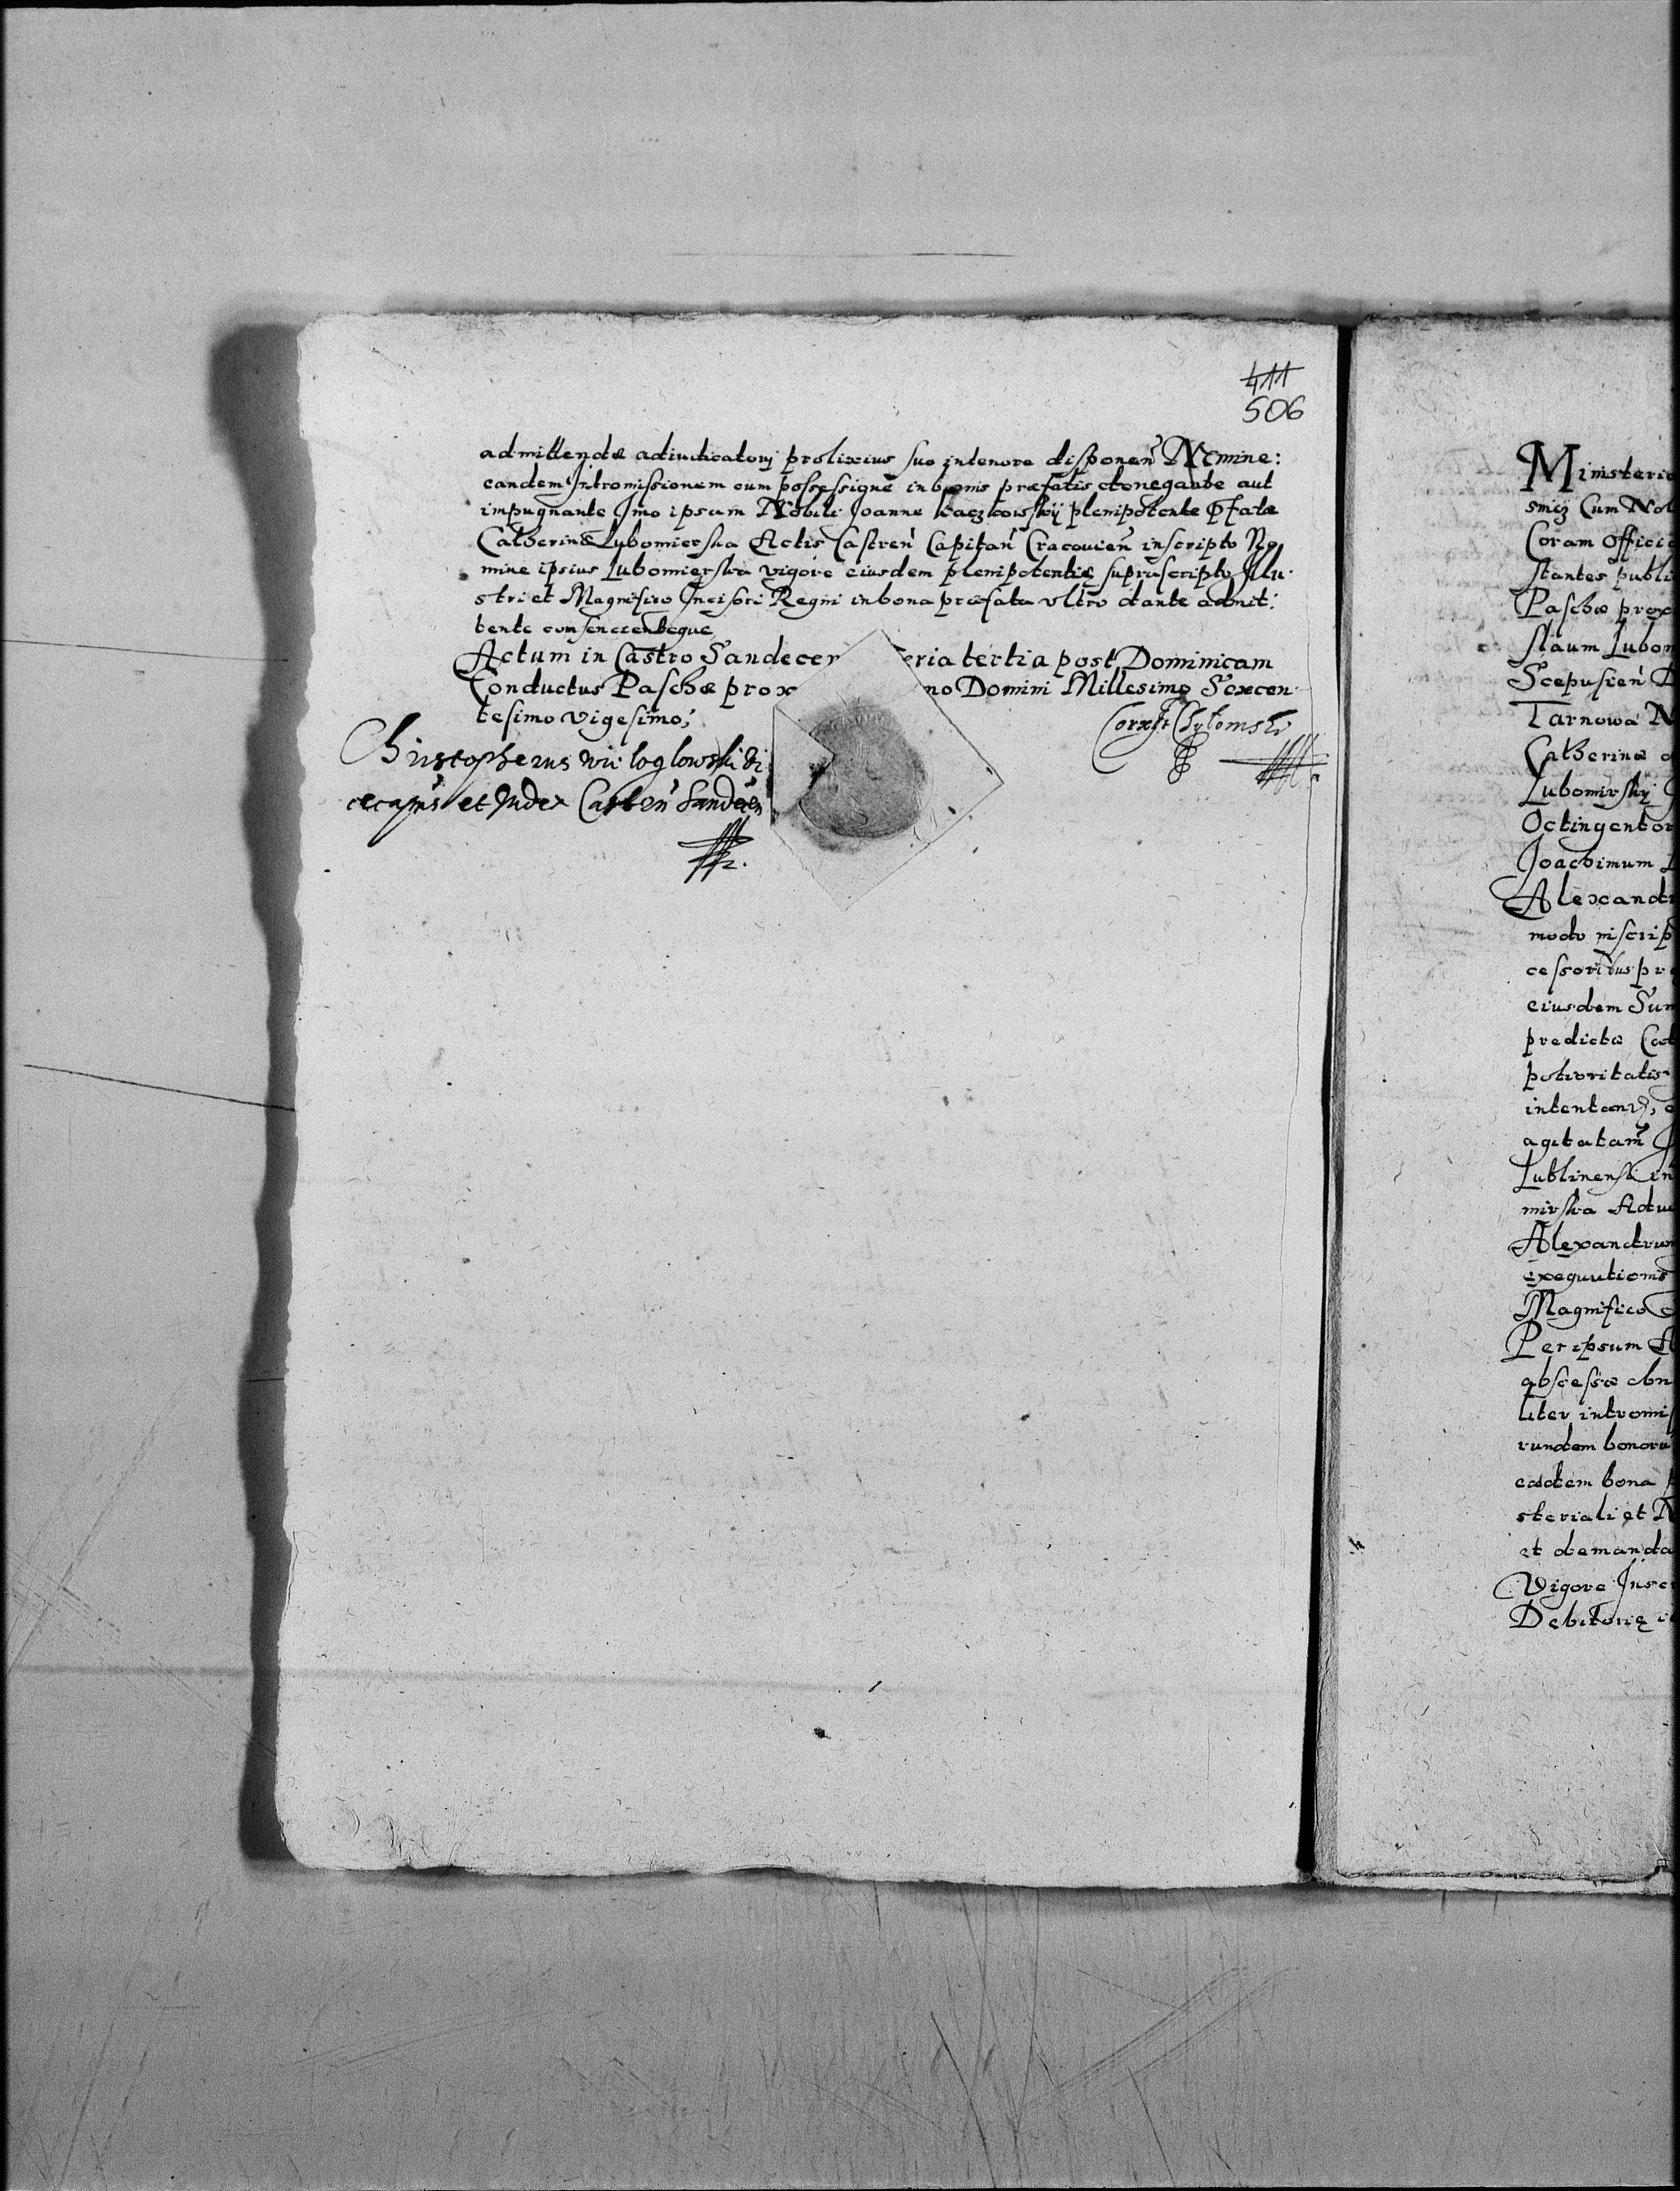 411
506
admittendæ adiudicatorij prolixius suo intenore disponen Nemine:
eandem Intromissionem cum possessione in bonis præfatis denegante aut
impugnante Imo ipsam Nobili Joanne plenipotente
Catherinæ Lubomierska Actis Castren Capitan Cracouien inscripto No
mine ipsius Lubomierska vigore eiusdem plenipotentię suprascripto Illu
stri et Magnifico Incisori Regni in bona præfata vltro dante admit:
tente consencienteque
Actum in Castro Sandecen eria tertia post Dominicam
Conductus Paschæ prox no Domini Millesimo Sexcen
tesimo vigesimo;
Christopherus wieloglowski Vi
cecapns et Judex Castren Sandecen
Ministeria
smij Cum Nob
Coram Officio
stantes publi
Paschæ prox
slaum Lubom
Scepusien D
Tarnowa N
Catherinæ
Lubomirskij
Octingentor
Joachimum
Alexandr
modo inscrip
cessoribus pr
eiusdem Sum
predictæ Cat
potioritatis
intentan
agitatam J
Lublinensi in
mirska Actu
Alexandrum
exequutionis
Magnifico
Per ipsum A
abscessæ
liter intromis
rundem bonoru
eadem bona p
steriali et N
et demanda
Vigore Inscr
Debitorię